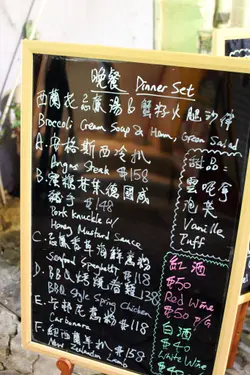 晚餐 Dinner Set
西蘭花忌廉湯&蟹籽火腿沙律
Broccoli Cream Soup & Ham, Green Salad
A. 安格斯西冷扒
Angus Steak $158
B. 蜜糖芥末德國咸
豬手 $148
Pork Knuckle w/
Honey Mustard Sauce
C. 忌廉香草海鮮意粉
Seafood Spaghetti $118
D. BBQ燒春雞 $138
BBQ Style Spring Chicken
E. 卡邦尼意粉 $118
Carbonara
F. 紐西蘭羊扒 $158
New Zealand Lamb
甜品:
雲呢拿
泡芙
Vanilla
Puff
紅酒
$50
Red Wine
$50 P/G
白酒
$40
White Wine
$40